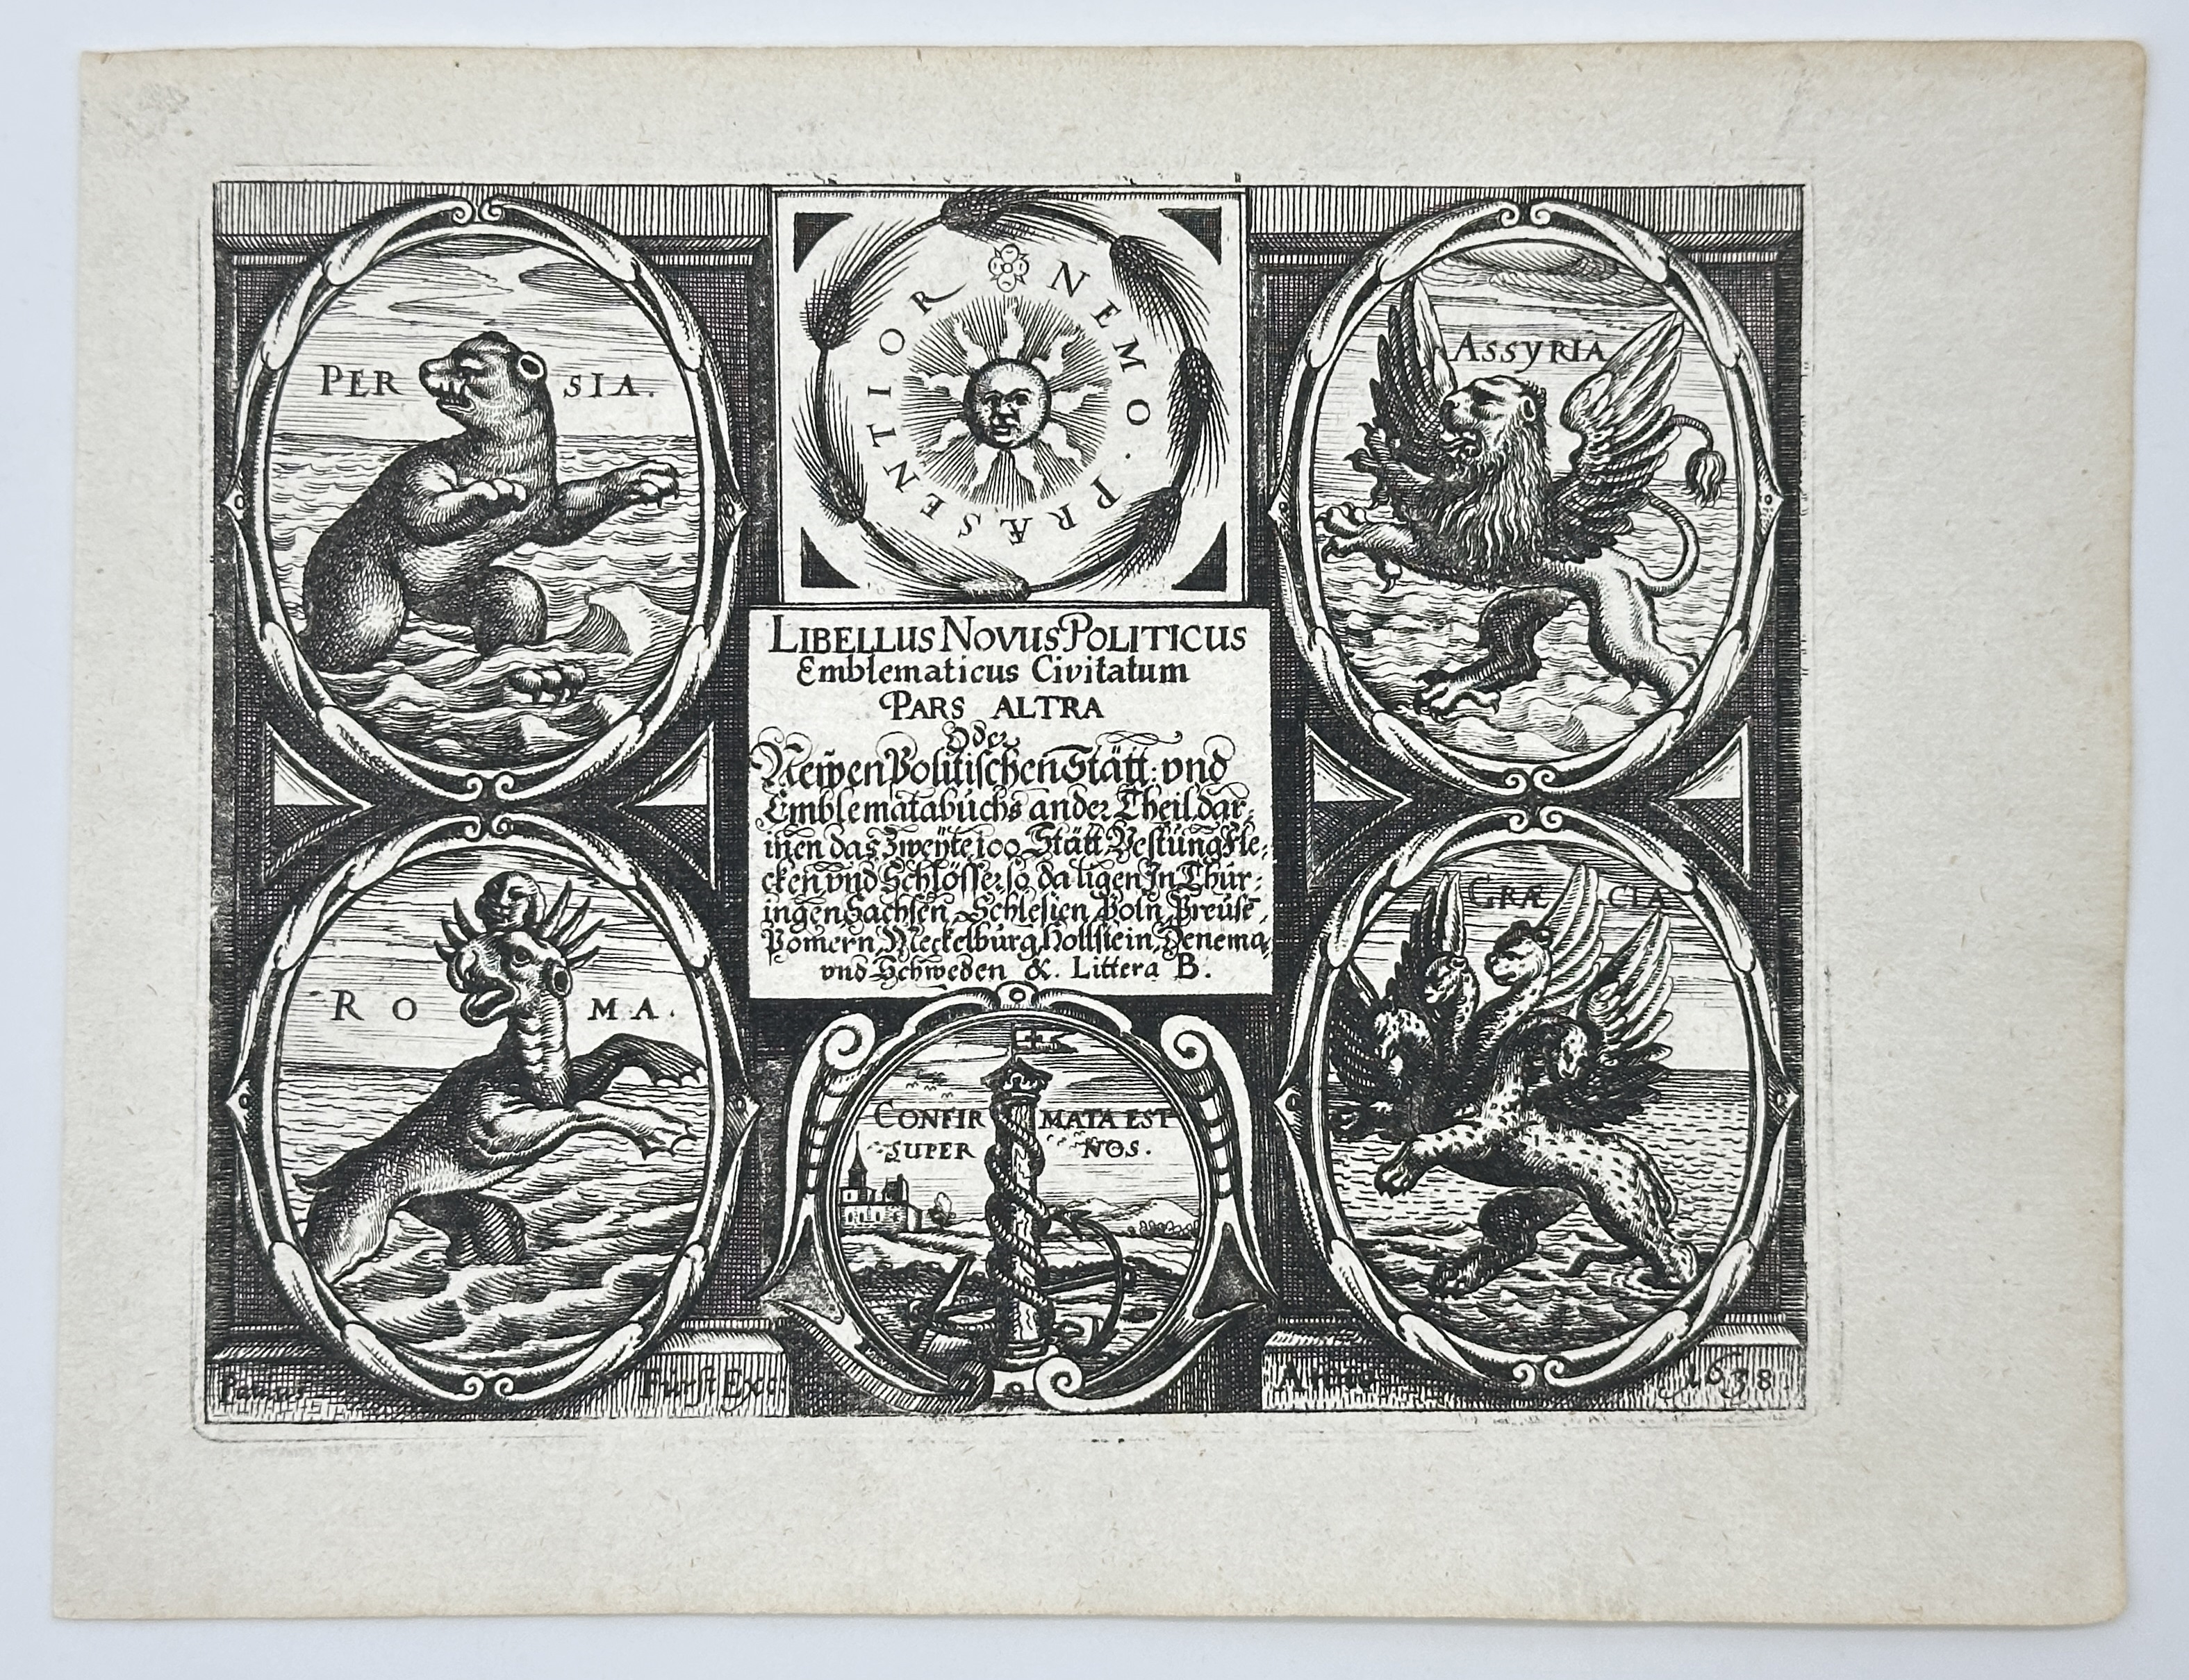 PERSIA.
NEMO. PRÆSENTIOR
ASSYRIA
LIBELLUS NOVUS POLITICUS
Emblematicus Civitatum
PARS ALTRA
Oder
Newen Politischen Stätt: vnd
Emblematabuchs ander Theil dar¸
inen das Zweyte 100 Stätt Vestung Fle¸
cken vnd Schlösser so da ligen In Thür¸
ingen Sachsen Schlesien Poln Preuse¸
Pomern Meckelburg Hollstein Denema¸
vnd Schweden &. Littera B.
ROMA.
GRÆCIA
CONFIRMATA EST
SUPER NOS.
Paulus Fürst Exc:
Anno 1638